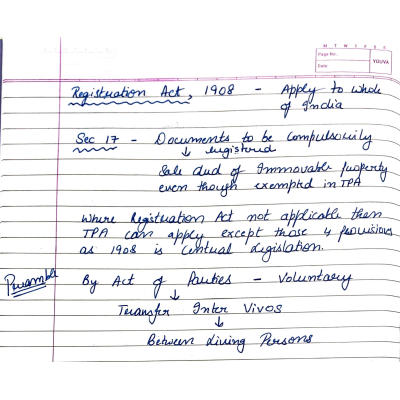 M T W T F S S
Page No.
Date
YOUVA
Registration Act, 1908 - Apply to whole
of India
Sec 17 - Documents to be compulsorily
↓ registered
Sale deed of Immovable Property
even though exempted in TPA
Where Registration Act not applicable then
TPA can apply except those 4 provisions
as 1908 is Central legislation.
Preamble
By Act of Parties - Voluntary
↓
Transfer Inter Vivos
↓
Between living Persons